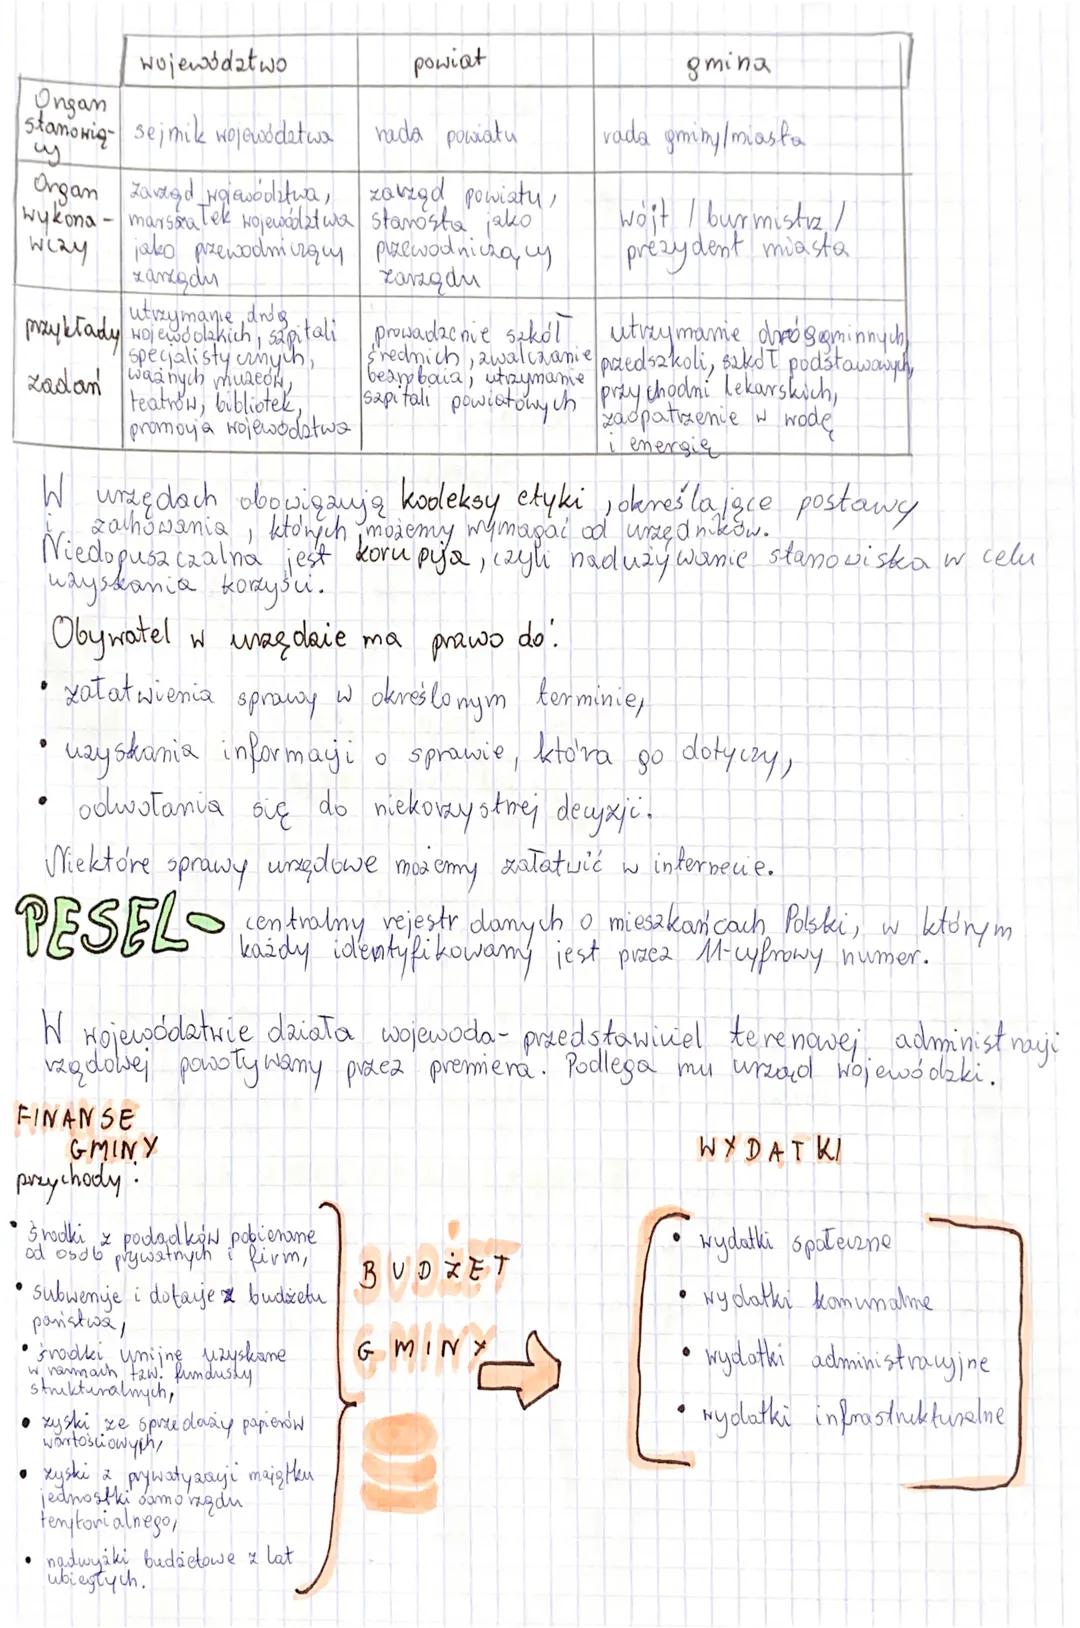 województwo powiat gmina
Organ stanowiący sejmik województwa rada powiatu rada gminy/miasta
Organ wykonawczy
zarząd województwa,
marszałek województwa
jako przewodniczący
zarządu
zarząd powiatu,
starosta jako
przewodniczący
zarządu
wójt / burmistrz /
prezydent miasta
przykłady
zadań
utrzymanie dróg
wojewódzkich, szpitali
specjalistycznych,
ważnych muzeów,
teatrów, bibliotek,
promocja województwa
prowadzenie szkół
średnich, zwalczanie
bezrobocia, utrzymanie
szpitali powiatowych
utrzymanie dróg gminnych,
przedszkoli, szkół podstawowych,
przychodni lekarskich,
zaopatrzenie w wodę
i energię
W urzędach obowiązują kodeksy etyki, określające postawy
i zachowania, których możemy wymagać od urzędników.
Niedopuszczalna jest korupcja, czyli nadużywanie stanowiska w celu
uzyskania korzyści.
Obywatel w urzędzie ma prawo do:
• załatwienia sprawy w określonym terminie,
• uzyskania informacji o sprawie, która go dotyczy,
• odwołania się do niekorzystnej decyzji.
Niektóre sprawy urzędowe możemy załatwić w internecie.
PESEL- centralny rejestr danych o mieszkańcach Polski, w którym
każdy identyfikowany jest przez 11-cyfrowy numer.
W województwie działa wojewoda- przedstawiciel terenowej administracji
rządowej powoływany przez premiera. Podlega mu urząd wojewódzki.
FINANSE
GMINY
przychody:
• środki z podadków pobierane
od osób prywatnych i firm,
• subwencje i dotacje z budżetu
państwa,
• środki unijne uzyskane
w ramach tzw. funduszy
strukturalnych,
• zyski ze sprzedaży papierów
wartościowych,
• zyski z prywatyzacji majątku
jednostki samorządu
terytorialnego,
• nadwyżki budżetowe z lat
ubiegłych.
BUDŻET
GMINY
WYDATKI
• wydatki społeczne
• wydatki komunalne
• wydatki administracyjne
• wydatki infrastrukturalne